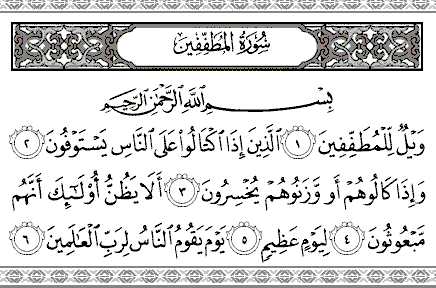 سُورَةُ المُطَفِّفِينَ
بِسْمِ اللَّهِ الرَّحْمَٰنِ الرَّحِيمِ
وَيْلٌ لِّلْمُطَفِّفِينَ ١ الَّذِينَ إِذَا اكْتَالُوا۟ عَلَى النَّاسِ يَسْتَوْفُونَ ٢
وَإِذَا كَالُوهُمْ أَو وَّزَنُوهُمْ يُخْسِرُونَ ٣ أَلَا يَظُنُّ أُو۟لَٰٓئِكَ أَنَّهُم
مَّبْعُوثُونَ ٤ لِيَوْمٍ عَظِيمٍ ٥ يَوْمَ يَقُومُ النَّاسُ لِرَبِّ الْعَالَمِينَ ٦